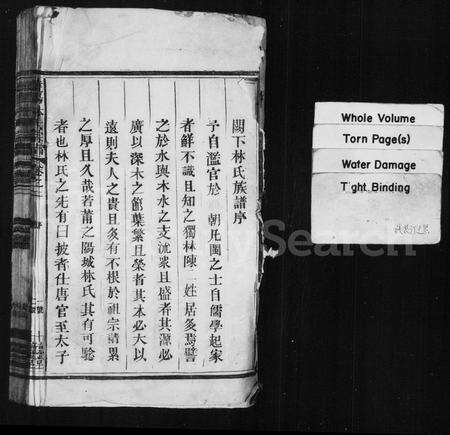 闕下林氏族譜序
予自濫官於 朝凡閩之士自儒學起家
者鮮不識且知之獨林陳二姓居多焉譬
之於水與木水之支流衆且盛者其源必
廣以深木之節葉繁且榮者其本必大以
遠則夫人之貴且衆有不根於祖宗積累
之厚且久哉若莆之陽城林氏其有可驗
者也林氏之先有曰披者仕唐官至太子
Whole Volume
Torn Page(s)
Water Damage
Tight Binding
Search